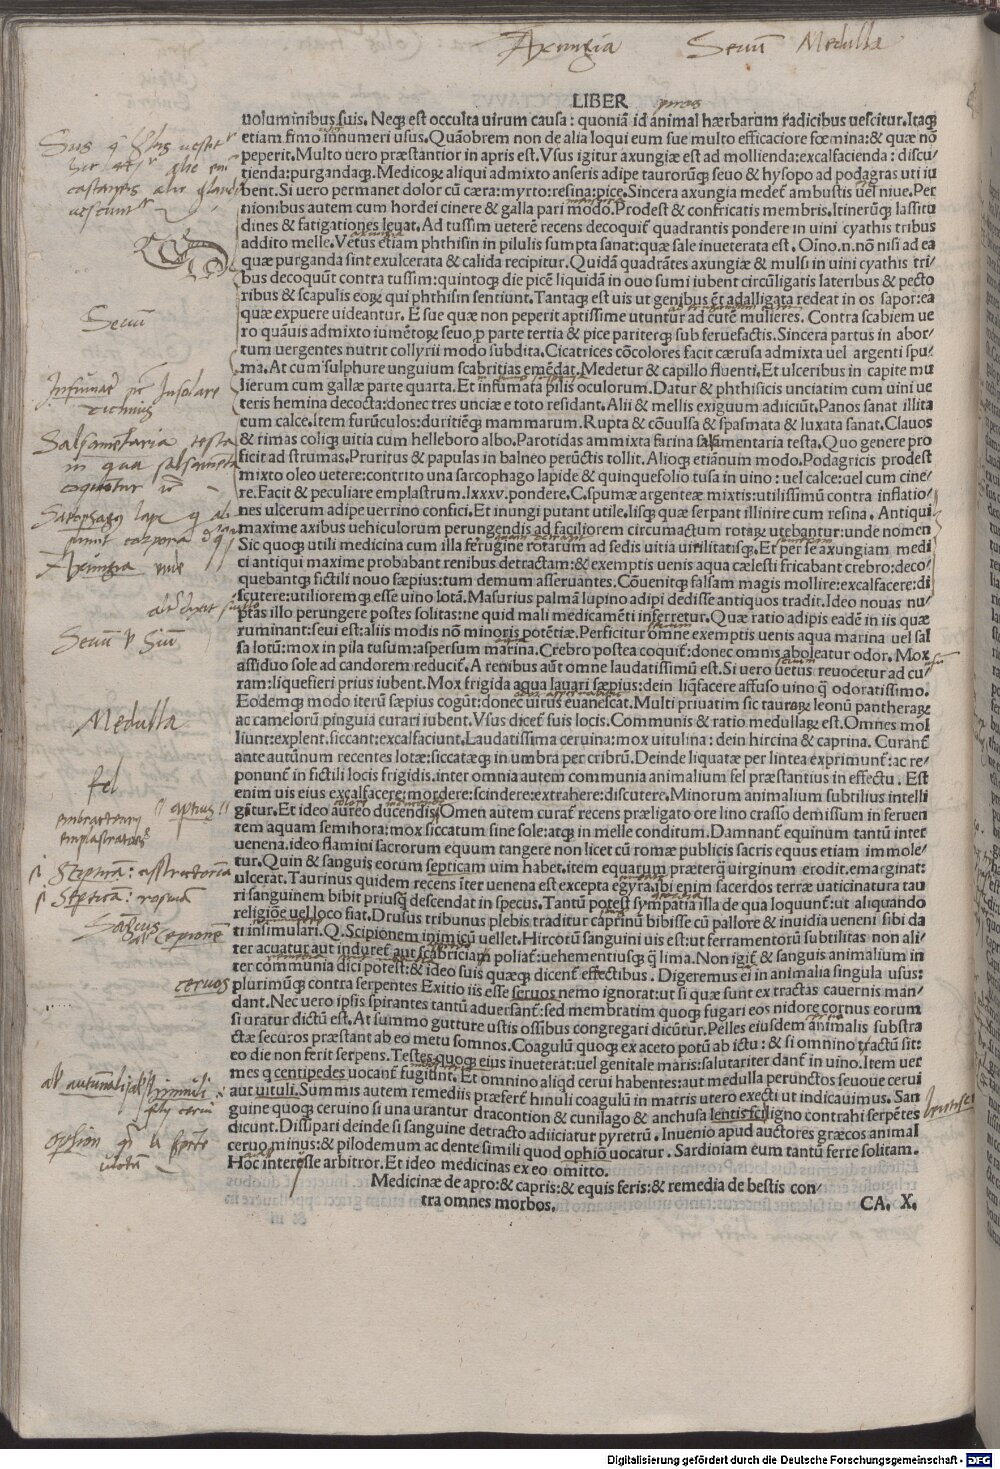 Axungia Seuum Medullæ
LIBER
uoluminibus suis. Neqꝫ est occulta uirum causa: quoniã id animal hærbarum radicibus uescitur. Itaqꝫ
etiam fimo innumeri usus. Quãobrem non de alia loqui eum sue multo efficaciore fœmina: & quæ nõ
peperit. Multo uero præstantior in apris est. Vsus igitur axungiæ est ad mollienda: excalfacienda: discu/
tienda: purgandaqꝫ. Medicorꝫ aliqui admixto anseris adipe taurorũqꝫ seuo & hysopo ad podagras uti iu
bent. Si uero permanet dolor cũ cæra: myrto: resina: pice. Sincera axungia medet̃ ambustis uel niue. Per
nionibus autem cum hordei cinere & galla pari modo. Prodest & confricatis membris. Itinerũqꝫ lassitu
dines & fatigationes leuat. Ad tussim ueterẽ recens decoquit̃ quadrantis pondere in uini cyathis tribus
addito melle. Vetus etiam phthisin in pilulis sumpta sanat: quæ sale inueterata est. Oĩno. n. nõ nisi ad ea
quæ purganda sint exulcerata & calida recipitur. Quidã quadrãtes axungiæ & mulsi in uini cyathis tri/
bus decoquũt contra tussim: quintoqꝫ die picẽ liquidã in ouo sumi iubent circũligatis lateribus & pecto
ribus & scapulis eorꝫ qui phthisin sentiunt. Tantaqꝫ est uis ut genibus et̃ adalligata redeat in os sapor: ea
quæ expuere uideantur. E sue quæ non peperit aptissime utuntur ad cutẽ mulieres. Contra scabiem ue
ro quãuis admixto iumẽtorꝫ seuo p parte tertia & pice pariterqꝫ sub feruefactis. Sincera partus in abor/
tum uergentes nutrit collyrii modo subdita. Cicatrices cõcolores facit cærusa admixta uel argenti spu/
ma. At cum sulphure unguium scabritias emẽdat. Medetur & capillo fluenti. Et ulceribus in capite mu
lierum cum gallæ parte quarta. Et infumata pilis oculorum. Datur & phthisicis unciatim cum uini ue
teris hemina decocta: donec tres unciæ e toto residant. Alii & mellis exiguum adiiciũt. Panos sanat illita
eum calce. Item furũculos: duritiẽqꝫ mammarum. Rupta & cõuulsa & spasmata & luxata sanat. Clauos
& rimas coliqꝫ uitia cum helleboro albo. Parotidas ammixta farina salsimentaria testa. Quo genere pro
ficit ad strumas. Pruritus & papulas in balneo perũctis tollit. Alioqꝫ etiãnum modo. Podagricis prodest
mixto oleo uetere: contrito una sarcophago lapide & quinquefolio tusa in uino: uel calce: uel cum cine/
re. Facit & peculiare emplastrum. lxxxv. pondere. C. spumæ argenteæ mixtis: utilissimũ contra inflatio/
nes ulcerum adipe uerrino confici. Et inungi putant utile. Iisqꝫ quæ serpant illinire cum resina. Antiqui
maxime axibus uehiculorum perungendis ad faciliorem circumactum rotarꝫ utebantur: unde nomen
Sic quoqꝫ utili medicina cum illa ferugine rotarum ad sedis uitia uirilitatisqꝫ. Et per se axungiam medi
ci antiqui maxime probabant renibus detractam: & exemptis uenis aqua cælesti fricabant crebro: deco/
quebantqꝫ fictili nouo sæpius: tum demum asseruantes. Cõuenitqꝫ salsam magis mollire: excalfacere: di
scutere: utilioremqꝫ esse uino lotã. Masurius palmã lupino adipi dedisse antiquos tradit. Ideo nouas nu/
ptas illo perungere postes solitas: ne quid mali medicamẽti inferretur. Quæ ratio adipis eadẽ in iis quæ
ruminant: seui est: aliis modis nõ minoris potẽtiæ. Perficitur omne exemptis uenis aqua marina uel sal
sa lotũ: mox in pila tusum: aspersum marina. Crebro postea coquit̃: donec omnis aboleatur odor. Mox
assiduo sole ad candorem reducit̃. A renibus aũt omne laudatissimũ est. Si uero uetus reuocetur ad cu/
ram: liquefieri prius iubent. Mox frigida aqua lauari sæpius: dein liq̃facere affuso uino q̃ odoratissimo.
Eodemqꝫ modo iterũ sæpius cogũt: donec uirus euanescat. Multi priuatim sic taurarꝫ leonũ pantherarꝫ
ac camelorũ pinguia curari iubent. Vsus dicet̃ suis locis. Communis & ratio medullarꝫ est. Omnes mol
liunt: explent. siccant: excalfaciunt. Laudatissima ceruina: mox uitulina: dein hircina & caprina. Curant̃
ante autũnum recentes lotæ: siccatæqꝫ in umbra per cribrũ. Deinde liquatæ per lintea exprimunt̃: ac re/
ponunt̃ in fictili locis frigidis. inter omnia autem communia animalium fel præstantius in effectu. Est
enim uis eius excalfacere: mordere: scindere: extrahere: discutere. Minorum animalium subtilius intelli
gitur. Et ideo aureo ducendis. Omen autem curat̃ recens præligato ore lino crasso demissum in feruen
tem aquam semihora: mox siccatum sine sole: atqꝫ in melle conditum. Damnant̃ equinum tantũ inter
uenena. ideo flamini sacrorum equum tangere non licet cũ romæ publicis sacris equus etiam immole/
tur. Quin & sanguis eorum septicam uim habet. item equarum præterq̃ uirginum erodit. emarginat:
ulcerat. Taurinus quidem recens ĩter uenena est excepta egyra. ibi enim sacerdos terræ uaticinatura tau
ri sanguinem bibit priusq̃ descendat in specus. Tantũ potest sympatia illa de qua loquunt̃: ut aliquando
religiõe uel loco fiat. Drusus tribunus plebis traditur caprinũ bibisse cũ pallore & inuidia ueneni sibi da
ti insimulari. Q. Scipionem inimicũ uellet. Hircorũ sanguini uis est: ut ferramentorũ subtilitas non ali/
ter acuatur aut induret̃ aut scabriciam poliat̃: uehementiusqꝫ q̃ lima. Non igit̃ & sanguis animalium in
ter communia dici potest: & ideo suis quæqꝫ dicent̃ effectibus. Digeremus ei in animalia singula usus:
plurimũqꝫ contra serpentes Exitio iis esse seruos nemo ignorat: ut si quæ sunt extractas cauernis man/
dant. Nec uero ipsis spirantes tantũ aduersant̃: sed membratim quoqꝫ fugari eos nidore cornus eorum
si uratur dictũ est. At summo gutture ustis ossibus congregari dicũtur. Pelles eiusdem animalis substra
ctæ secũros præstant ab eo metu somnos. Coagulũ quoqꝫ ex aceto potũ ab ictu: & si omnino tractũ sit:
eo die non ferit serpens. Testes quoqꝫ eius inueterat: uel genitale maris: salutariter dant̃ in uino. Item uer
mes q centipedes uocant̃ fugiunt. Et omnino aliqd cerui habentes: aut medulla perunctos seuoue cerui
aut uituli. Summis autem remediis præfert̃ hinuli coagulũ in matris utero execti ut indicauimus. San
guine quoqꝫ ceruino si una urantur dracontion & cunilago & anchusa lentiscíligno contrahi serpẽtes
dicunt. Dissipari deinde si sanguine detracto adiiciatur pyretrũ. Inuenio apud auctores græcos animal
ceruo minus: & pilo demum ac dente simili quod ophiõ uocatur. Sardiniam eum tantũ ferre solitam.
Hõc interĩsse arbitror. Et ideo medicinas ex eo omitto.
Medicinæ de apro: & capris: & equis feris: & remedia de bestis con/
tra omnes morbos. CA. X.
Seuum
Axungia unde
Medulla
fel
ceruos
Digitalisierung gefördert durch die Deutsche Forschungsgemeinschaft - DFG